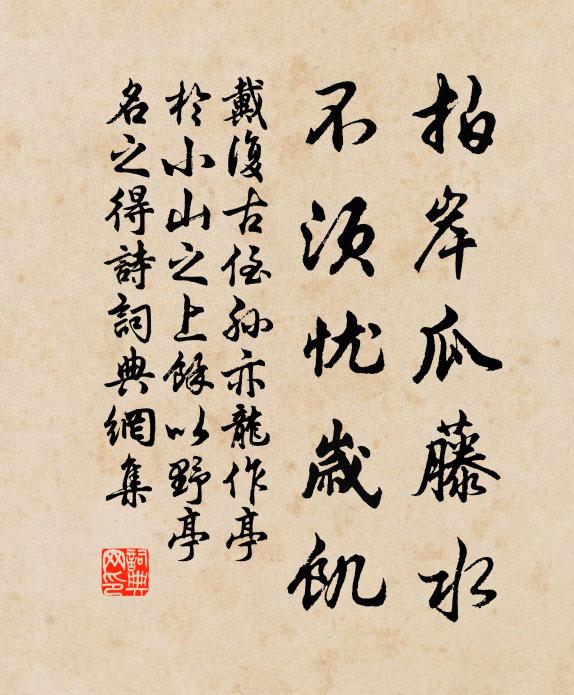 拍岸瓜藤水
不須忧歲飢
戴復古侄孙亦龍作亭
於小山之上餘以野亭
名之得詩詞典網集
詞典网印